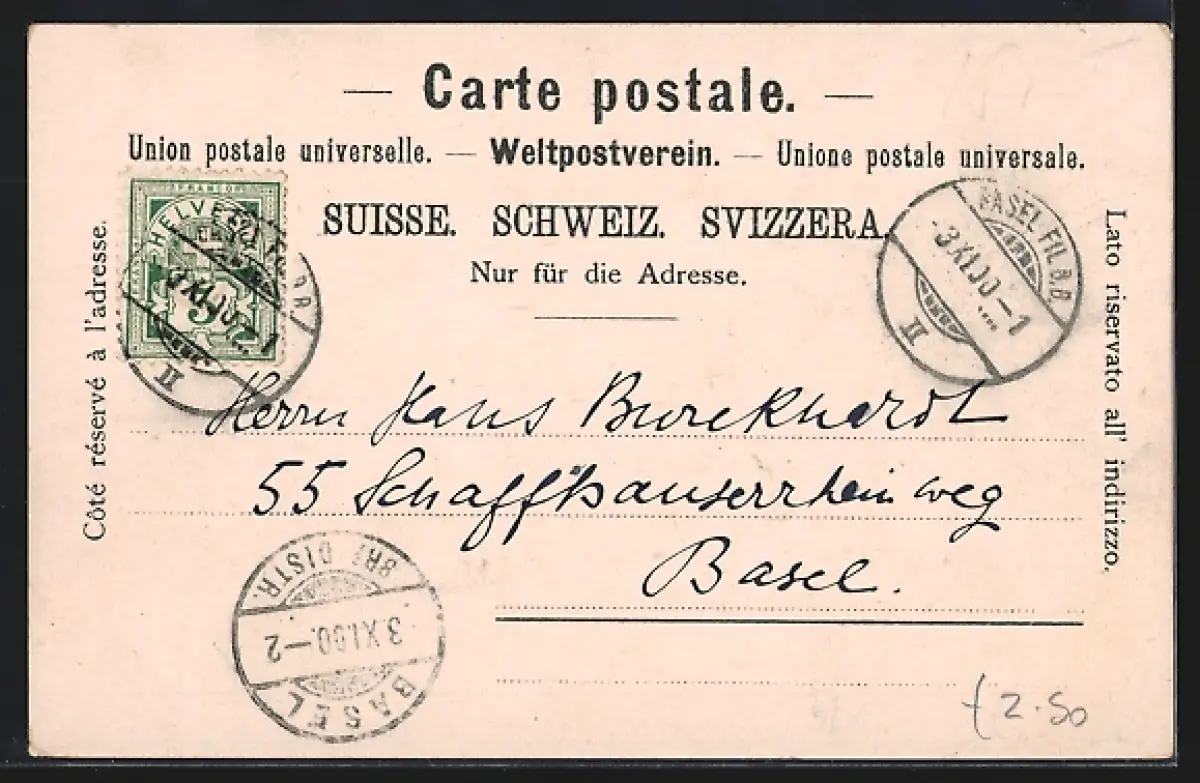 — Carte postale. —
Union postale universelle. — Weltpostverein. — Unione postale universale.
SUISSE. SCHWEIZ. SVIZZERA.
Nur für die Adresse.
Côté réservé à l'adresse.
Lato riservato all' indirizzo.
FRANCO
HELVE
5
II
BASEL FIL.B.B
-3XI00-1
II
Herrn Hans Burckhardt
55 Schaffhauserrheinweg
Basel.
BRF. DISTR.
3 XI.00.-2
BASEL
2.50